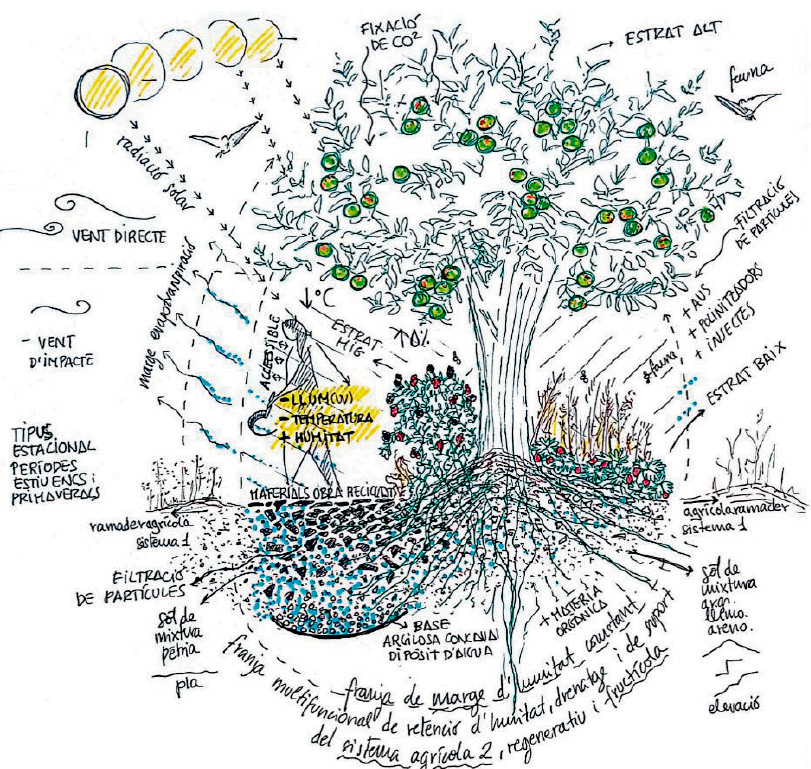 FIXACIÓ
DE CO²
ESTRAT ALT
fauna
radiació solar
VENT DIRECTE
FILTRACIÓ
DE PARTÍCULES
marge evapotranspiració
↓°C
ACCESSIBLE
ESTRAT
MIG
↑Δ%
+ AUS
+ POL·LINITZADORS
+ INJECTES
- VENT
D'IMPACTE
ESTRAT BAIX
- LLUM (UV)
- TEMPERATURA
+ HUMITAT
TIPUS
ESTACIONAL
PERÍODES
ESTIUENCS i
PRIMAVERALS
MATERIALS OBRA RECICLATS
ramader agrícola
sistema 1
agrícola ramader
sistema 1
FILTRACIÓ
DE PARTÍCULES
sòl de
mixtura
pètria
pla
BASE
ARGILOSA CONCAVA
DIPÒSIT D'AIGUA
+ MATERIA
ORGÀNICA
sòl de
mixtura
areno.
elevació
franja de marge d'humitat constant
franja multifuncional de retenció d'humitat, drenatge i de suport
del sistema agrícola 2, regeneratiu i fructícola